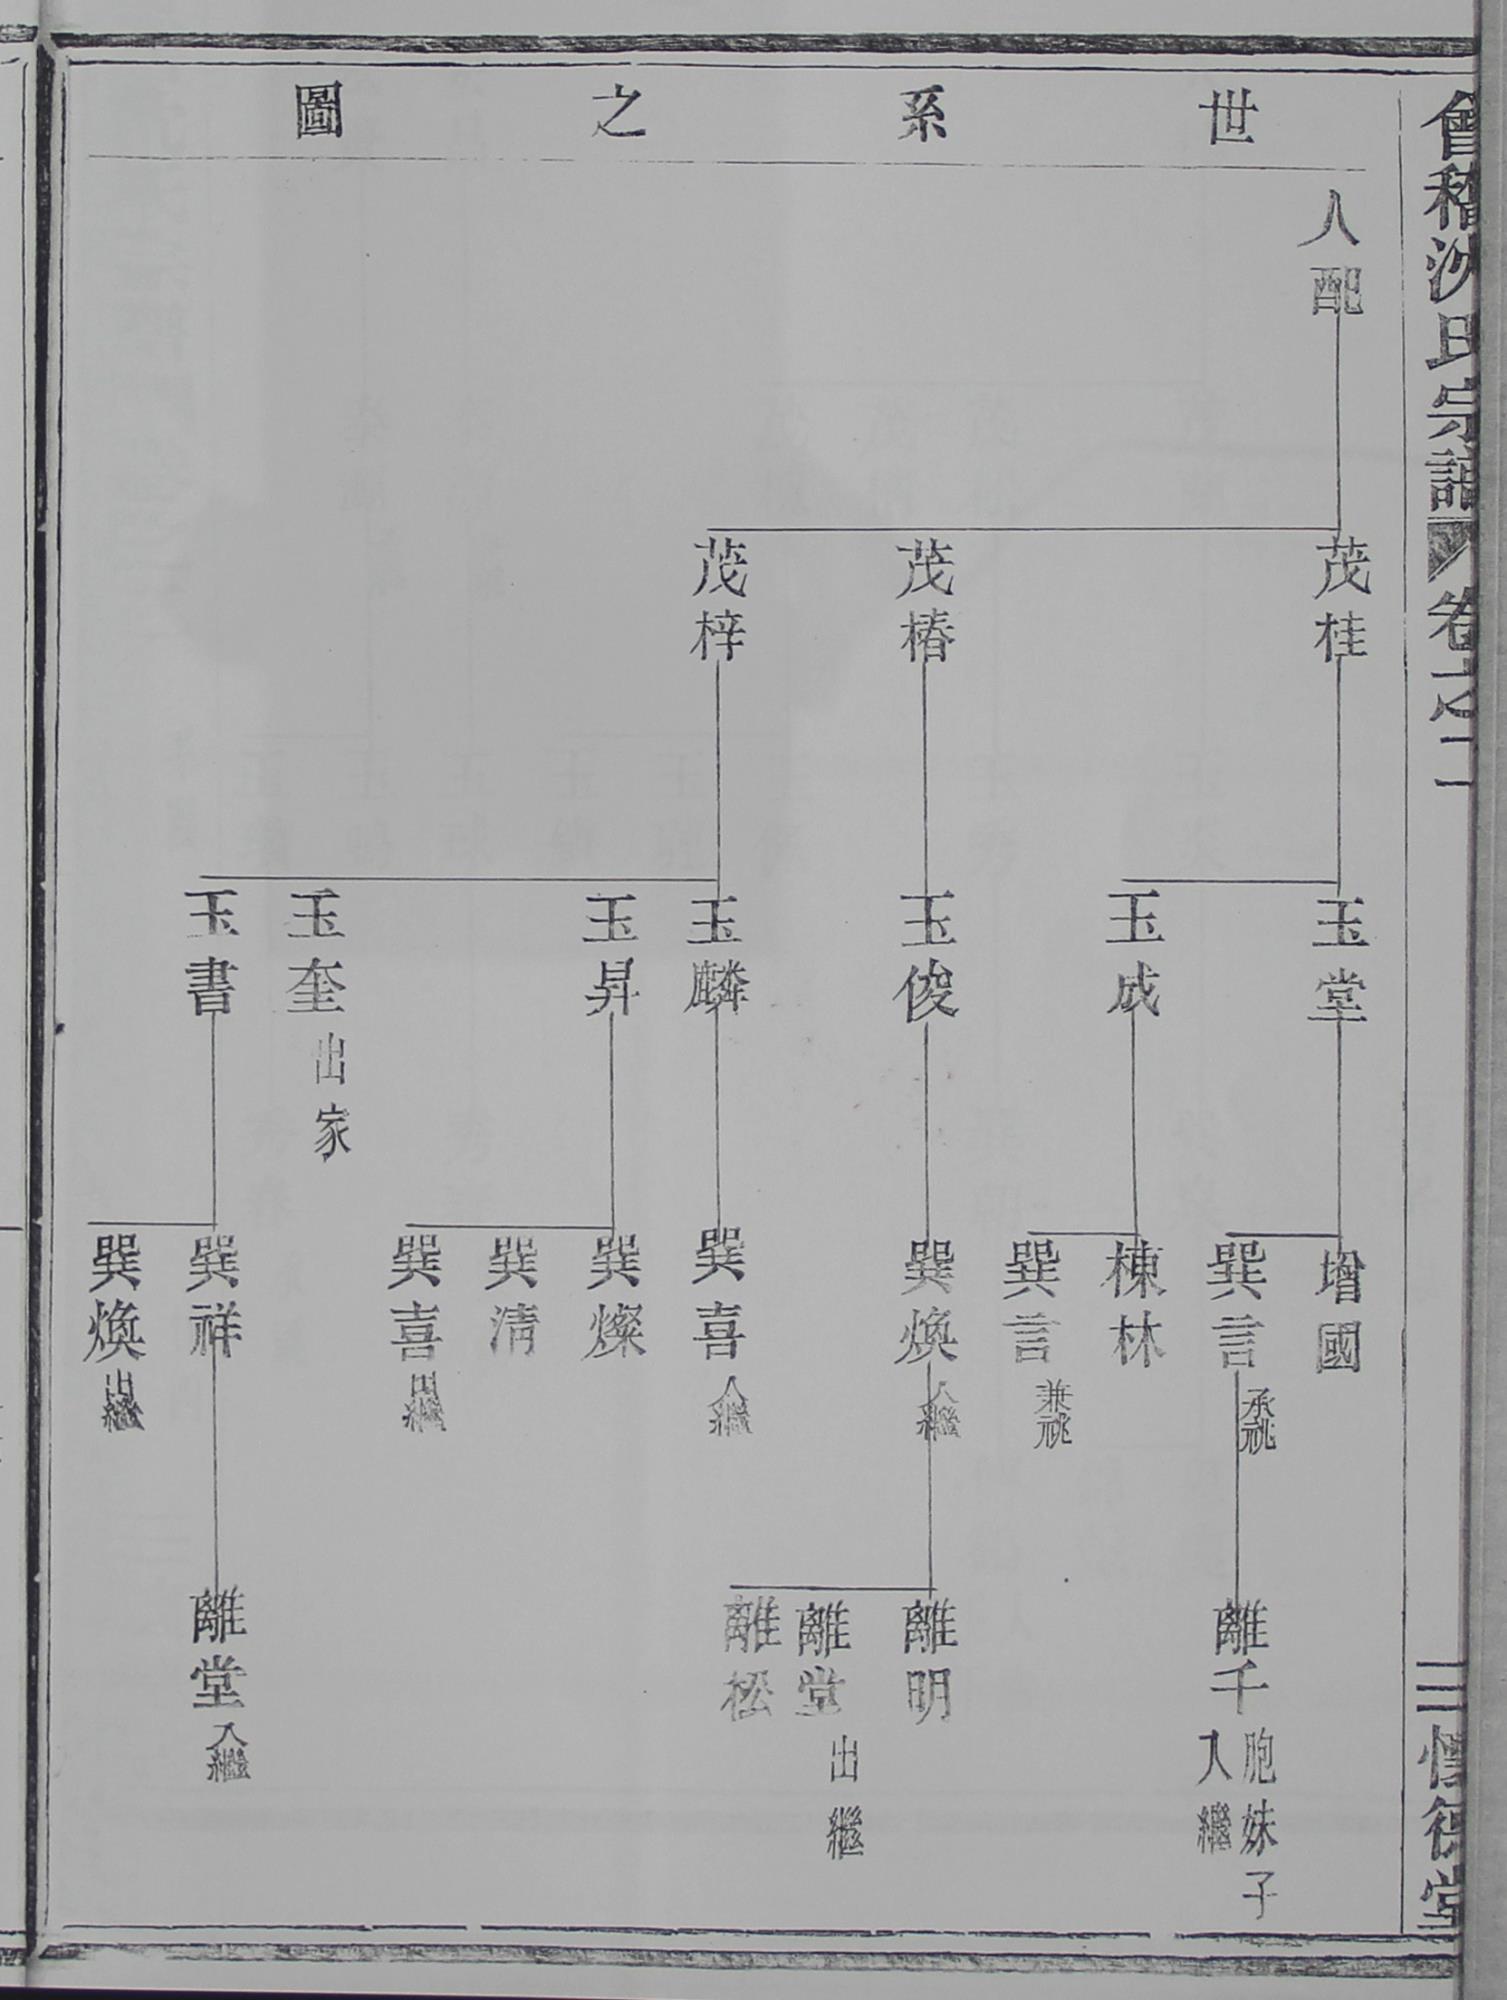 會稽洪氏宗譜
卷之二
三
懷德堂
世系之圖
人配
茂桂
茂椿
茂梓
玉堂
玉成
玉俊
玉麟
玉昇
玉奎 出家
玉書
增國
巽言 承祧
棟林
巽言 兼祧
巽煥 入繼
巽喜 入繼
巽燦
巽淸
巽喜 出繼
巽祥
巽煥 出繼
離千 胞妹子入繼
離明
離堂 出繼
離松
離堂 入繼